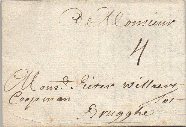 A Monsieur
4
Mons.r Pieter Willaeys
Coopman
Brugghe